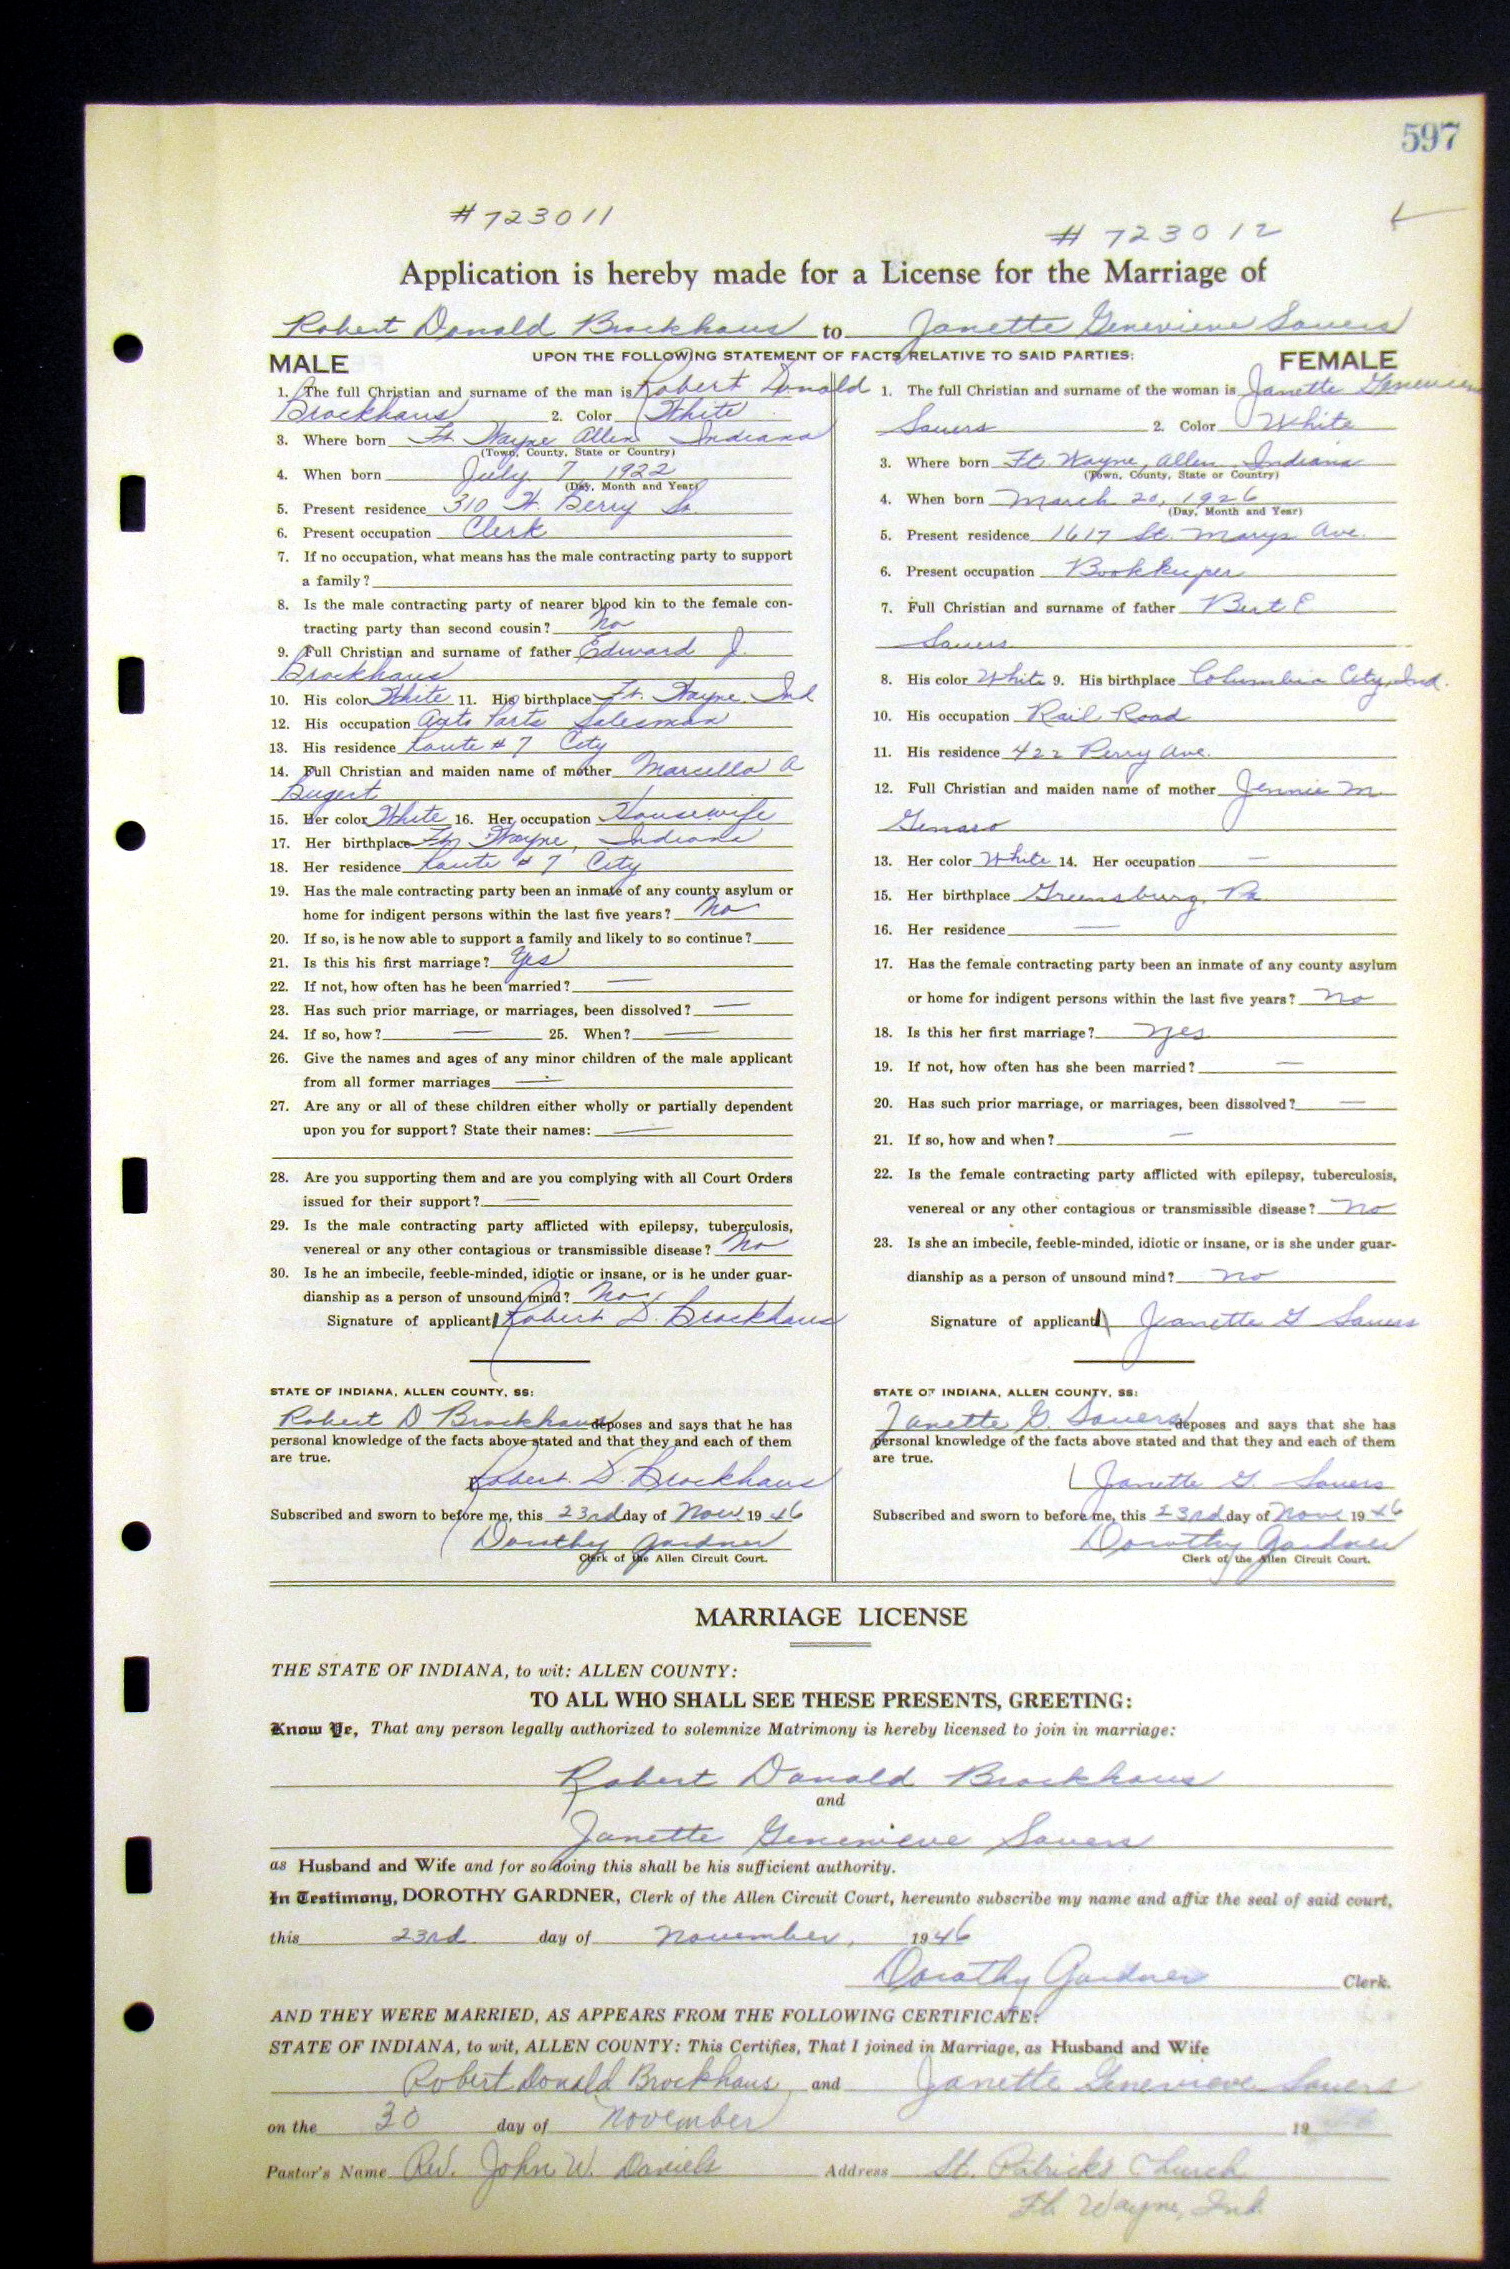 597
# 723011
# 723012
Application is hereby made for a License for the Marriage of
Robert Donald Brockhaus to Janette Genevieve Sauers
UPON THE FOLLOWING STATEMENT OF FACTS RELATIVE TO SAID PARTIES:
MALE
1. The full Christian and surname of the man is Robert Donald
Brockhaus 2. Color White
3. Where born Ft. Wayne Allen Indiana
(Town, County, State or Country)
4. When born July 7 1922
(Day, Month and Year)
5. Present residence 310 W. Berry St.
6. Present occupation Clerk
7. If no occupation, what means has the male contracting party to support
a family?
8. Is the male contracting party of nearer blood kin to the female con-
tracting party than second cousin? No
9. Full Christian and surname of father Edward J.
Brockhaus
10. His color White 11. His birthplace Ft. Wayne, Ind
12. His occupation Auto Parts Salesman
13. His residence Route # 7 City
14. Full Christian and maiden name of mother Marcella A
Bugert
15. Her color White 16. Her occupation Housewife
17. Her birthplace Ft. Wayne, Indiana
18. Her residence Route # 7 City
19. Has the male contracting party been an inmate of any county asylum or
home for indigent persons within the last five years? No
20. If so, is he now able to support a family and likely to so continue?
21. Is this his first marriage? Yes
22. If not, how often has he been married? —
23. Has such prior marriage, or marriages, been dissolved? —
24. If so, how? — 25. When? —
26. Give the names and ages of any minor children of the male applicant
from all former marriages —
27. Are any or all of these children either wholly or partially dependent
upon you for support? State their names: —
28. Are you supporting them and are you complying with all Court Orders
issued for their support? —
29. Is the male contracting party afflicted with epilepsy, tuberculosis,
venereal or any other contagious or transmissible disease? No
30. Is he an imbecile, feeble-minded, idiotic or insane, or is he under guar-
dianship as a person of unsound mind? No
Signature of applicant Robert D. Brockhaus
STATE OF INDIANA, ALLEN COUNTY, SS:
Robert D Brockhaus deposes and says that he has
personal knowledge of the facts above stated and that they and each of them
are true.
Robert D. Brockhaus
Subscribed and sworn to before me, this 23rd day of Nov. 19 46
Dorothy Gardner
Clerk of the Allen Circuit Court.
FEMALE
1. The full Christian and surname of the woman is Janette Genevieve
Sauers 2. Color White
3. Where born Ft. Wayne, Allen Indiana
(Town, County, State or Country)
4. When born March 20, 1926
(Day, Month and Year)
5. Present residence 1617 St. Marys Ave.
6. Present occupation Bookkeeper
7. Full Christian and surname of father Bert E
Sauers
8. His color White 9. His birthplace Columbia City, Ind.
10. His occupation Rail Road
11. His residence 422 Perry Ave.
12. Full Christian and maiden name of mother Jennie M.
Genaro
13. Her color White 14. Her occupation —
15. Her birthplace Greensburg, Pa
16. Her residence —
17. Has the female contracting party been an inmate of any county asylum
or home for indigent persons within the last five years? No
18. Is this her first marriage? Yes
19. If not, how often has she been married? —
20. Has such prior marriage, or marriages, been dissolved? —
21. If so, how and when? —
22. Is the female contracting party afflicted with epilepsy, tuberculosis,
venereal or any other contagious or transmissible disease? No
23. Is she an imbecile, feeble-minded, idiotic or insane, or is she under guar-
dianship as a person of unsound mind? No
Signature of applicant Jeanette G Sauers
STATE OF INDIANA, ALLEN COUNTY, SS:
Janette G. Sauers deposes and says that she has
personal knowledge of the facts above stated and that they and each of them
are true.
Janette G. Sauers
Subscribed and sworn to before me, this 23rd day of Nov. 19 46
Dorothy Gardner
Clerk of the Allen Circuit Court.
MARRIAGE LICENSE
THE STATE OF INDIANA, to wit: ALLEN COUNTY:
TO ALL WHO SHALL SEE THESE PRESENTS, GREETING:
Know Ye, That any person legally authorized to solemnize Matrimony is hereby licensed to join in marriage:
Robert Donald Brockhaus
and
Janette Genevieve Sauers
as Husband and Wife and for so doing this shall be his sufficient authority.
In Testimony, DOROTHY GARDNER, Clerk of the Allen Circuit Court, hereunto subscribe my name and affix the seal of said court,
this 23rd day of November, 1946
Dorothy Gardner Clerk.
AND THEY WERE MARRIED, AS APPEARS FROM THE FOLLOWING CERTIFICATE:
STATE OF INDIANA, to wit, ALLEN COUNTY: This Certifies, That I joined in Marriage, as Husband and Wife
Robert Donald Brockhaus and Janette Genevieve Sauers
on the 30 day of November 19
Pastor's Name Rev. John W. Daniels Address St. Patricks Church
Ft. Wayne, Ind.